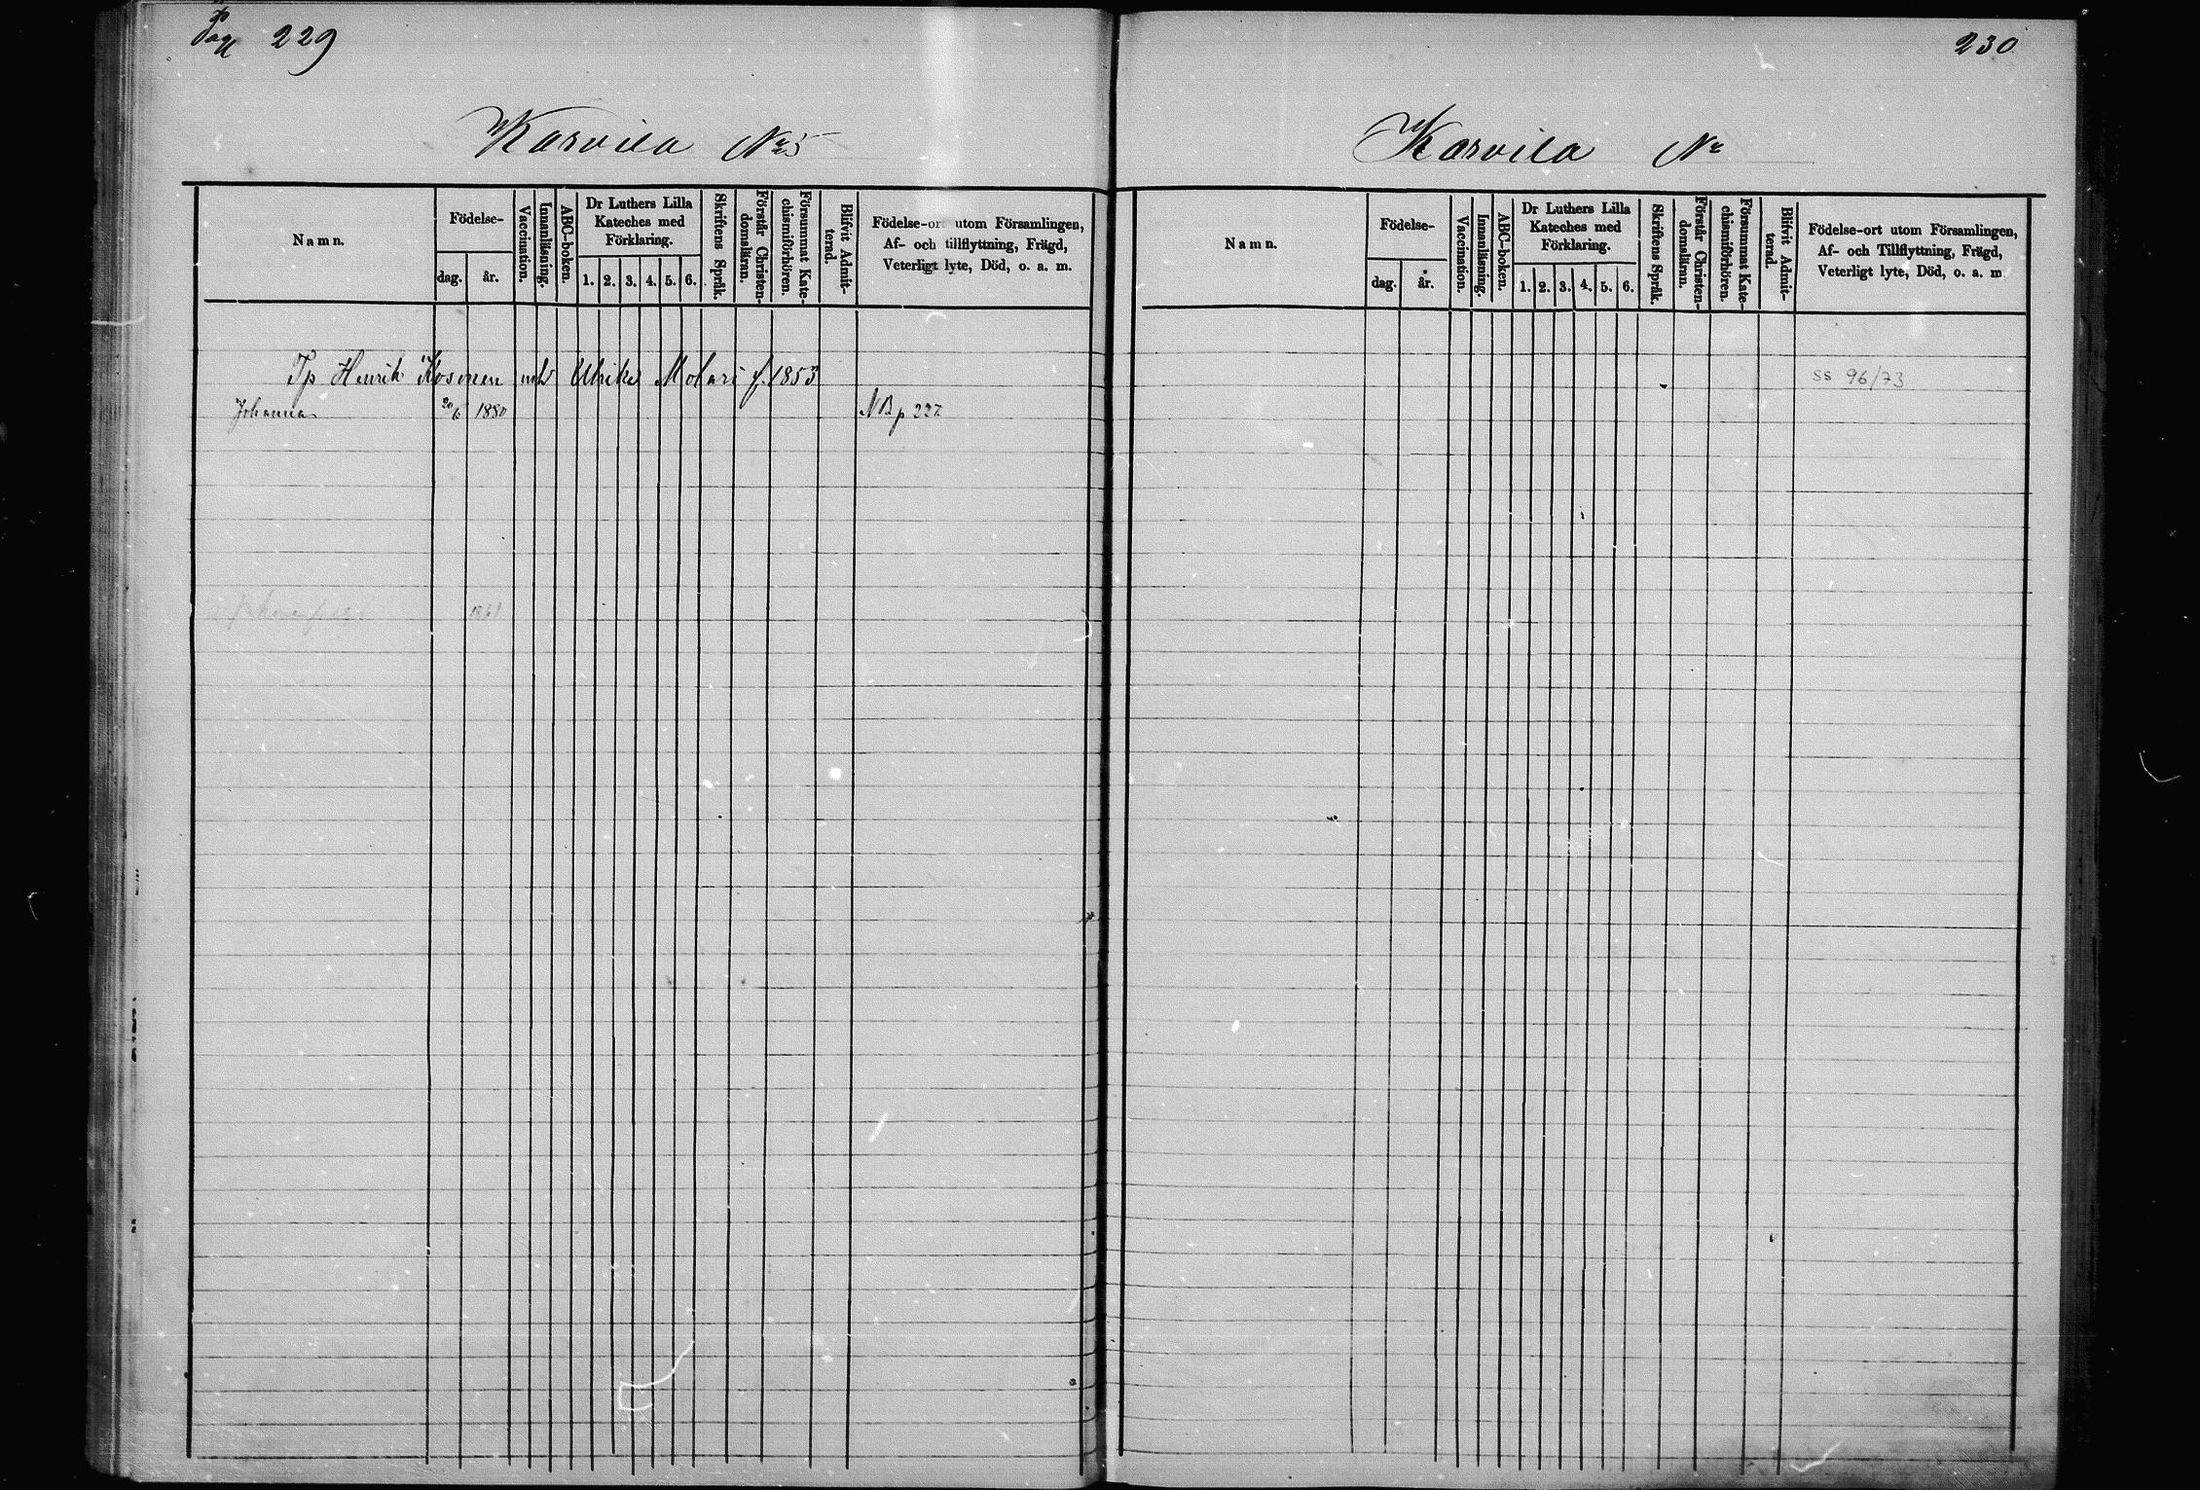 Pag 229
Korvila No 5
Namn.
Födelse-
dag.
år.
Vaccination.
Innanläsning.
ABC-boken.
Dr Luthers Lilla
Kateches med
Förklaring.
1. 2. 3. 4. 5. 6.
Skriftens Språk.
Förstår Christen-
domsläran.
Försummat Kate-
chismiförhören.
Blifvit Admit-
terad.
Födelse-ort utom Församlingen,
Af- och tillflyttning, Frägd,
Veterligt lyte, Död, o. a. m.
Tp Henrik Kosonen mh Ulrika Molari f. 1853
Johanna 20/6 1880 NB p 227
230
Korvila No
Namn.
Födelse-
dag.
år.
Vaccination.
Innanläsning.
ABC-boken.
Dr Luthers Lilla
Kateches med
Förklaring.
1. 2. 3. 4. 5. 6.
Skriftens Språk.
Förstår Christen-
domsläran.
Försummat Kate-
chismiförhören.
Blifvit Admit-
terad.
Födelse-ort utom Församlingen,
Af- och Tillflyttning, Frägd,
Veterligt lyte, Död, o. a. m
ss 96/73